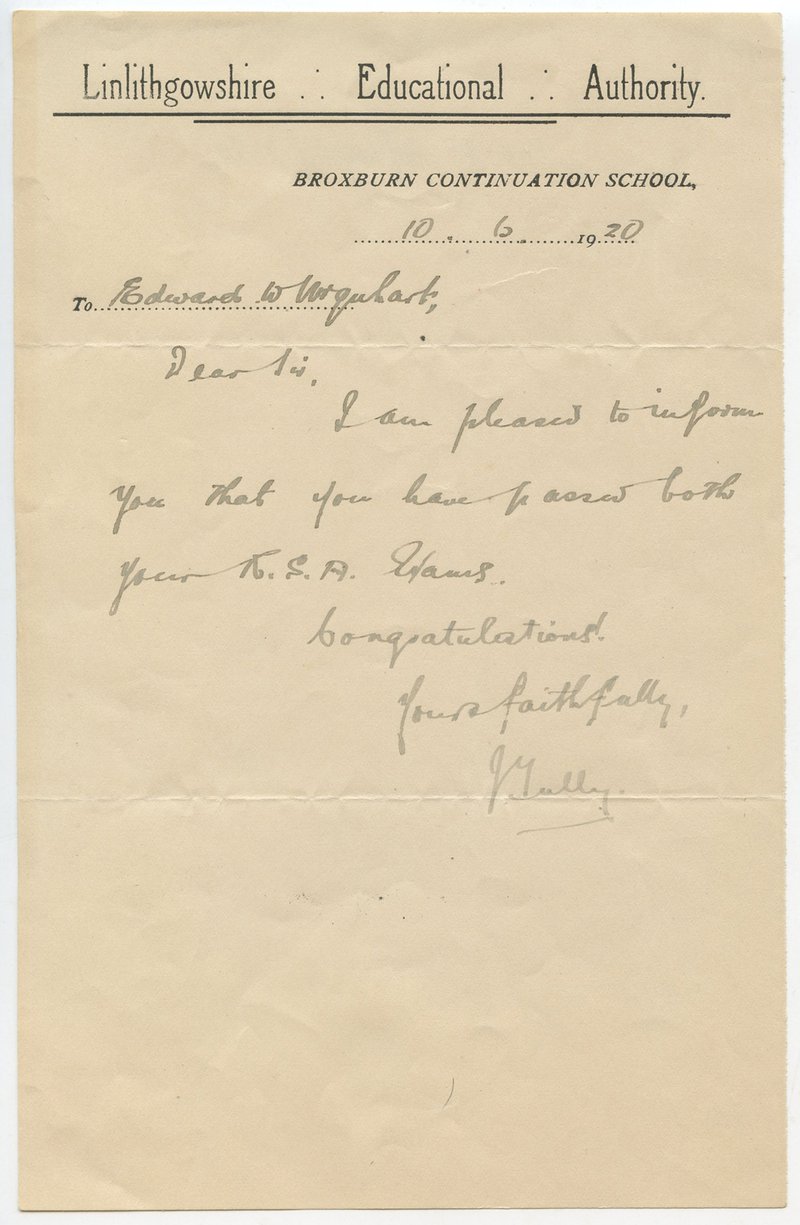 Linlithgowshire .·. Educational .·. Authority.
BROXBURN CONTINUATION SCHOOL,
10. 6. 1920
To Edward W Urquhart,
Dear Sir,
I am pleased to inform
you that you have passed both
your R.S.A. Exams.
Congratulations!
Yours faithfully,
J Tully.